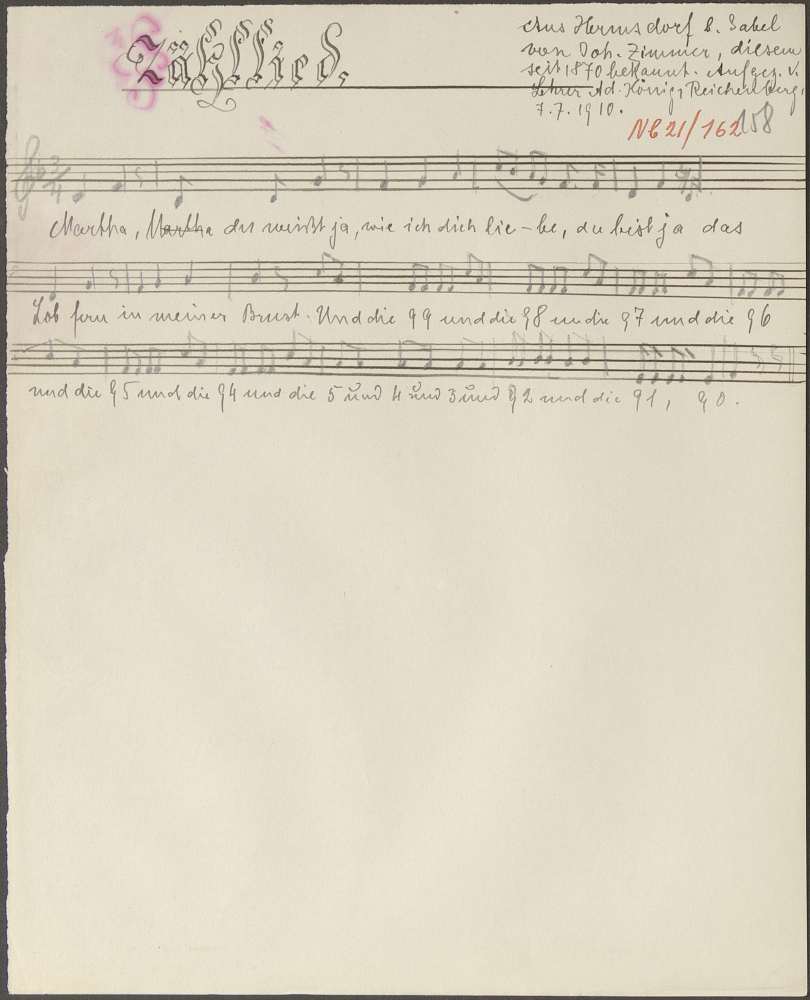 Zähllied.
Aus Hermsdorf b. Gabel
von Joh. Zimmer, diesem
seit 1870 bekannt. Aufgez. v.
Lehrer Ad. König, Reichenberg,
7.7.1910.
NB 21/162 158
3/4
Martha, Martha du weißt ja, wie ich dich lie-be, du bist ja das
in meiner Brust. Und die 99 und die 98 u die 97 und die 96
und die 95 und die 94 und die 5 und 4 und 3 und 92 und die 91, 90.